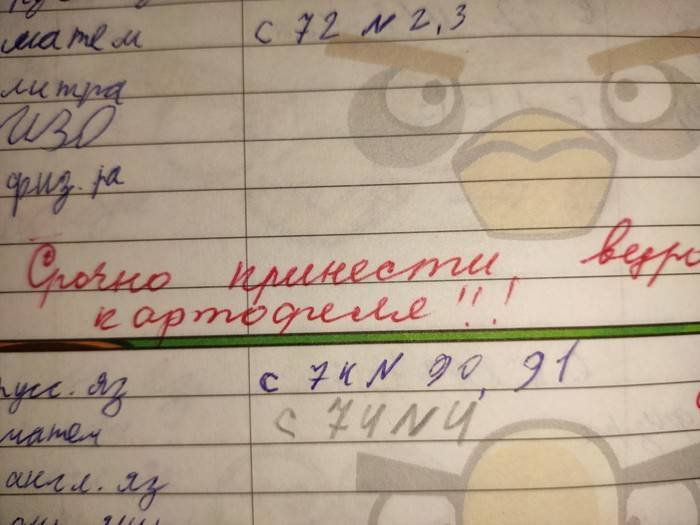 матем с 72 N 2,3
литра
ИЗО
физ-ра
Срочно принести ведро
картофеля!!!
русс. яз с 74 N 90, 91
матем с 74 N 4
англ. яз